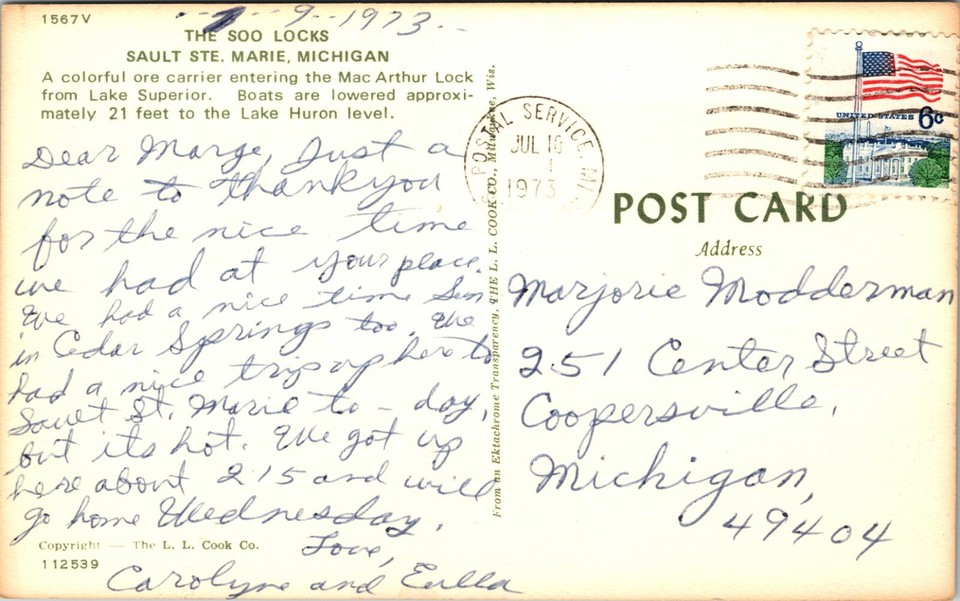 1567V
7-9-1973
THE SOO LOCKS
SAULT STE. MARIE, MICHIGAN
A colorful ore carrier entering the MacArthur Lock
from Lake Superior. Boats are lowered approxi-
mately 21 feet to the Lake Huron level.
Dear Marge, Just a
note to thank you
for the nice time
we had at your place.
We had a nice time Sun
in Cedar Springs too. We
had a nice trip up here to
Sault St. Marie to-day,
but its hot. We got up
here about 215 and will
go home Wednesday.
Love,
Carolyne and Eulla
Copyright — The L. L. Cook Co.
112539
From an Ektachrome Transparency, THE L. L. COOK CO., Milwaukee, Wis.
POSTAL SERVICE, MI
JUL 10
1973
UNITED STATES 6c
POST CARD
Address
Marjorie Modderman
251 Center Street
Coopersville,
Michigan,
49404